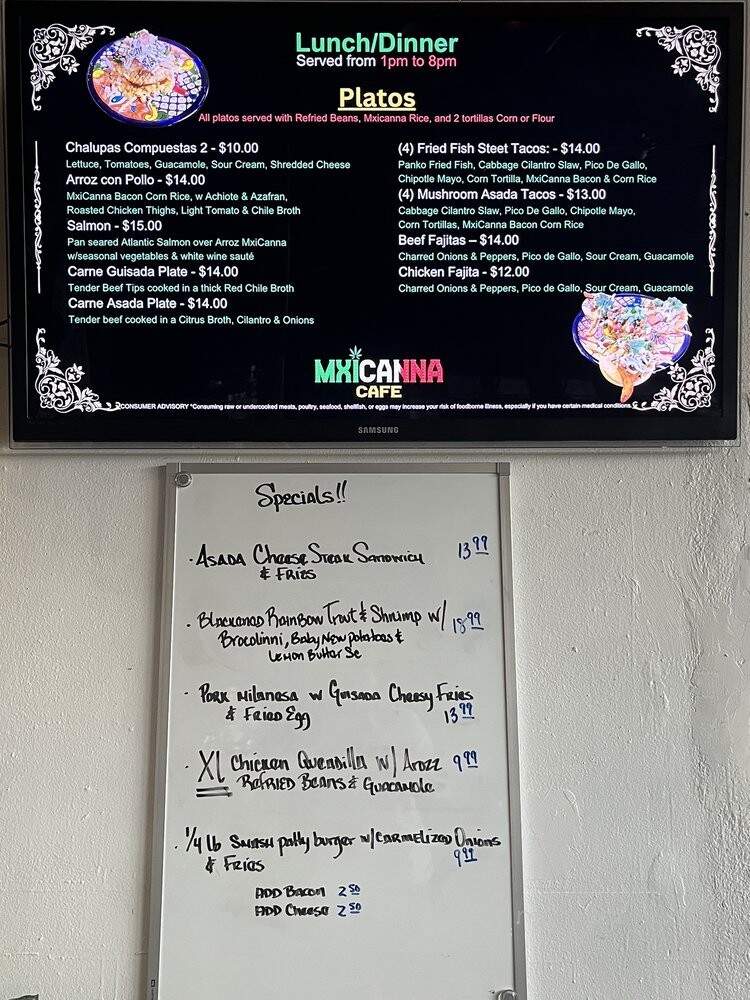 Lunch/Dinner
Served from 1pm to 8pm
Platos
All platos served with Refried Beans, Mxicanna Rice, and 2 tortillas Corn or Flour
Chalupas Compuestas 2 - $10.00
Lettuce, Tomatoes, Guacamole, Sour Cream, Shredded Cheese
Arroz con Pollo - $14.00
MxiCanna Bacon Corn Rice, w Achiote & Azafran,
Roasted Chicken Thighs, Light Tomato & Chile Broth
Salmon - $15.00
Pan seared Atlantic Salmon over Arroz MxiCanna
w/seasonal vegetables & white wine sauté
Carne Guisada Plate - $14.00
Tender Beef Tips cooked in a thick Red Chile Broth
Carne Asada Plate - $14.00
Tender beef cooked in a Citrus Broth, Cilantro & Onions
(4) Fried Fish Steet Tacos: - $14.00
Panko Fried Fish, Cabbage Cilantro Slaw, Pico De Gallo,
Chipotle Mayo, Corn Tortilla, MxiCanna Bacon & Corn Rice
(4) Mushroom Asada Tacos - $13.00
Cabbage Cilantro Slaw, Pico De Gallo, Chipotle Mayo,
Corn Tortillas, MxiCanna Bacon Corn Rice
Beef Fajitas – $14.00
Charred Onions & Peppers, Pico de Gallo, Sour Cream, Guacamole
Chicken Fajita - $12.00
Charred Onions & Peppers, Pico de Gallo, Sour Cream, Guacamole
MXICANNA
CAFE
CONSUMER ADVISORY *Consuming raw or undercooked meats, poultry, seafood, shellfish, or eggs may increase your risk of foodborne illness, especially if you have certain medical conditions.
SAMSUNG
Specials!!
· Asada Cheese Steak Sandwich 13 99
& Fries
· Blackened Rainbow Trout & Shrimp w/ 18 99
Brocolinni, Baby New Potatoes &
Lemon Butter Sc
· Pork Milanesa w Guisada Cheesy Fries
& Fried Egg 13 99
· XL Chicken Quesadilla w/ Arozz 9 99
Refried Beans & Guacamole
· 1/4 lb Smash patty burger w/ Carmelized Onions
& Fries 9 99
Add Bacon 2 50
Add Cheese 2 50